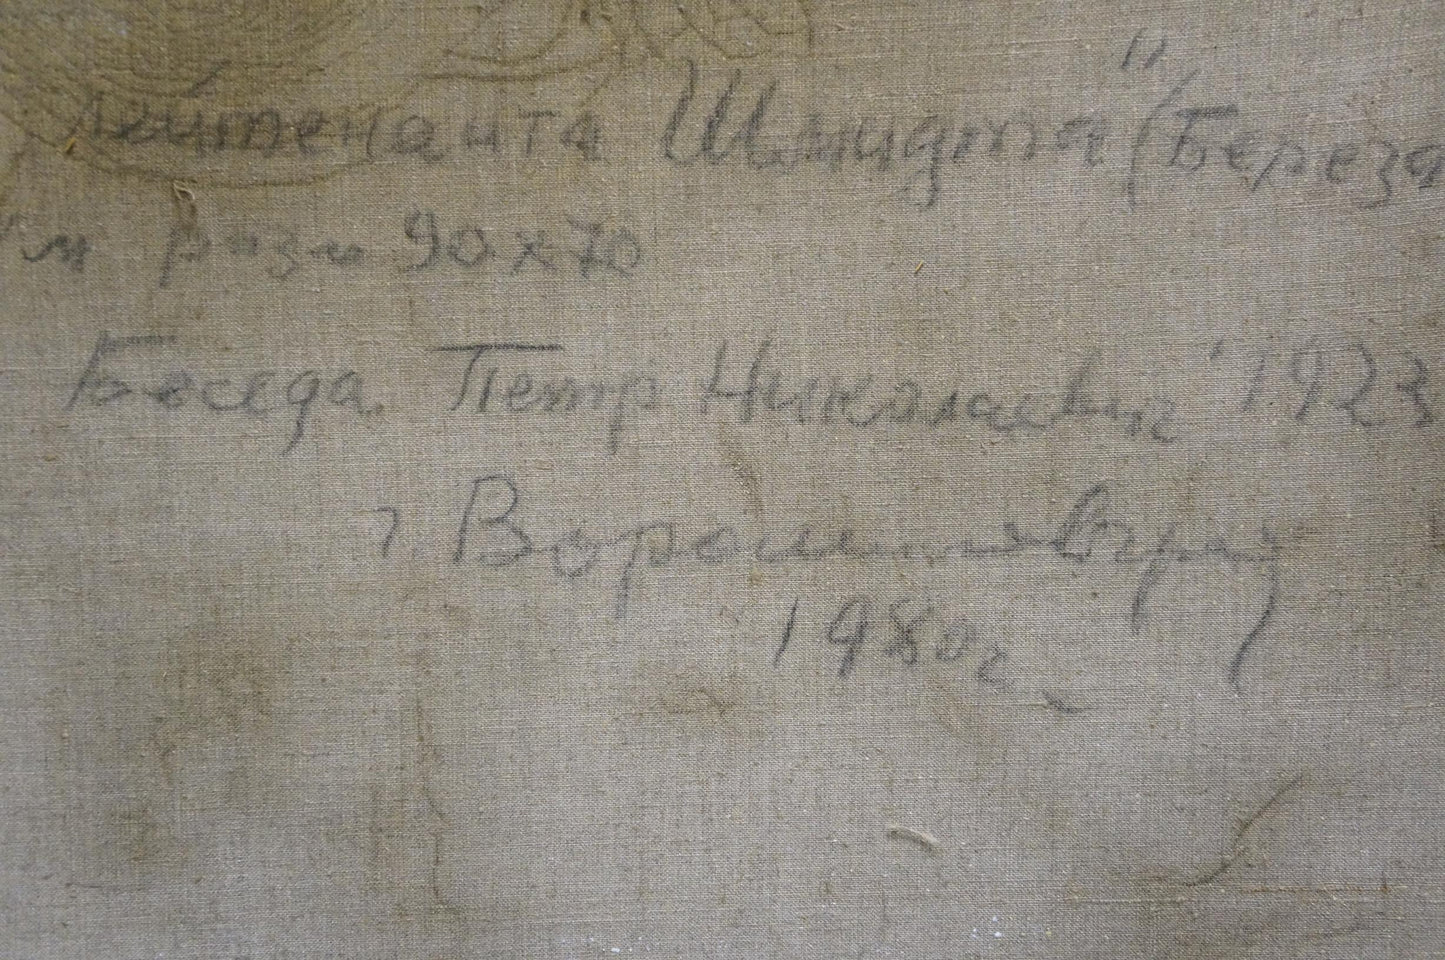 лейтенанта Шмидта" (Береза
"м разм 90х70
Беседа Петр Николаевич 1923
г. Ворошиловград
1980г.